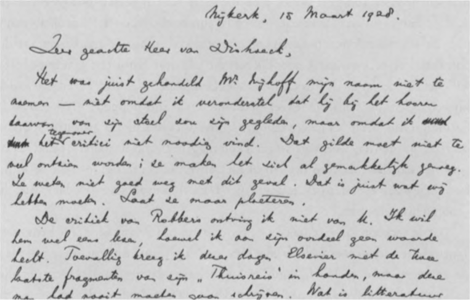 Nijkerk, 15 Maart 1928.
Zeer geachte Heer van Dishoeck,
Het was juist gehandeld Mr. Nijhoff mijn naam niet te
noemen — niet omdat ik veronderstel dat hij bij het hooren
daarvan van zijn stoel zou zijn gegleden, maar omdat ik
tegenover
het critici niet noodig vind. Dat gilde moet niet te
veel ontzien worden; ze maken het zich al gemakkelijk genoeg.
Ze weten niet goed weg met dit geval. Dat is juist wat wij
hebben moeten. Laat ze maar
De critiek van Robbers ontving ik niet van U. Ik wil
hem wel eens lezen, hoewel ik aan zijn oordeel geen waarde
hecht. Toevallig kreeg ik dezer dagen Elsevier met de twee
laatste fragmenten van zijn „Thuisreis" in handen, maar deze
man had nooit moeten gaan schrijven. Wat is litteratuur